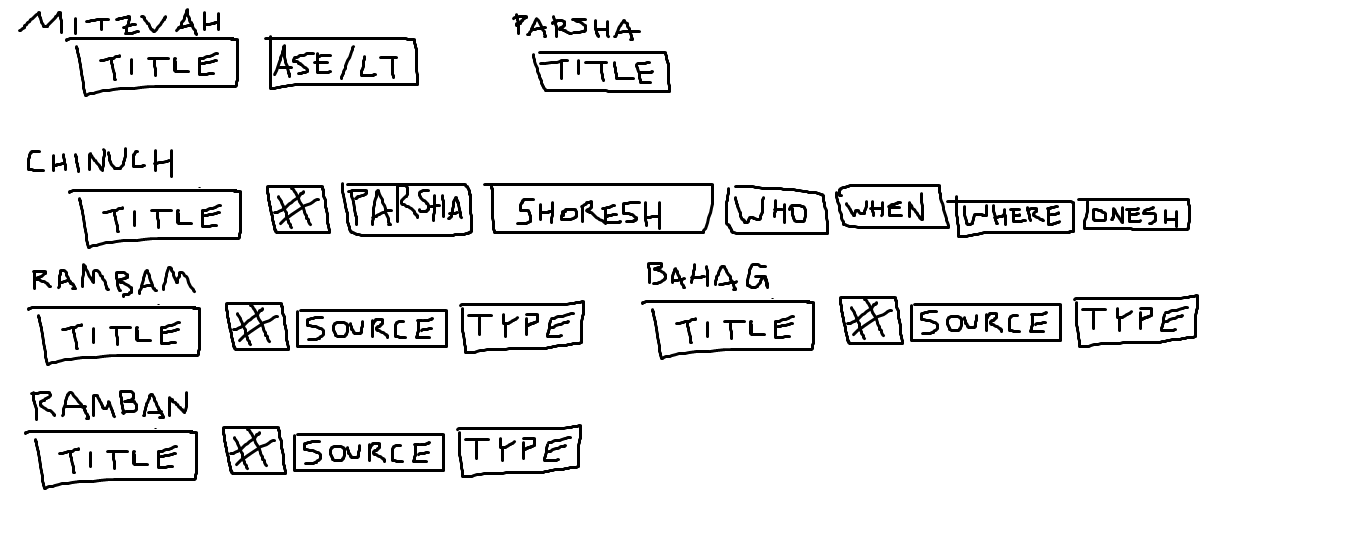 MITZVAH PARSHA
TITLE ASE/LT TITLE
CHINUCH
TITLE # PARSHA SHORESH WHO WHEN WHERE ONESH
RAMBAM BAHAG
TITLE # SOURCE TYPE TITLE # SOURCE TYPE
RAMBAN
TITLE # SOURCE TYPE